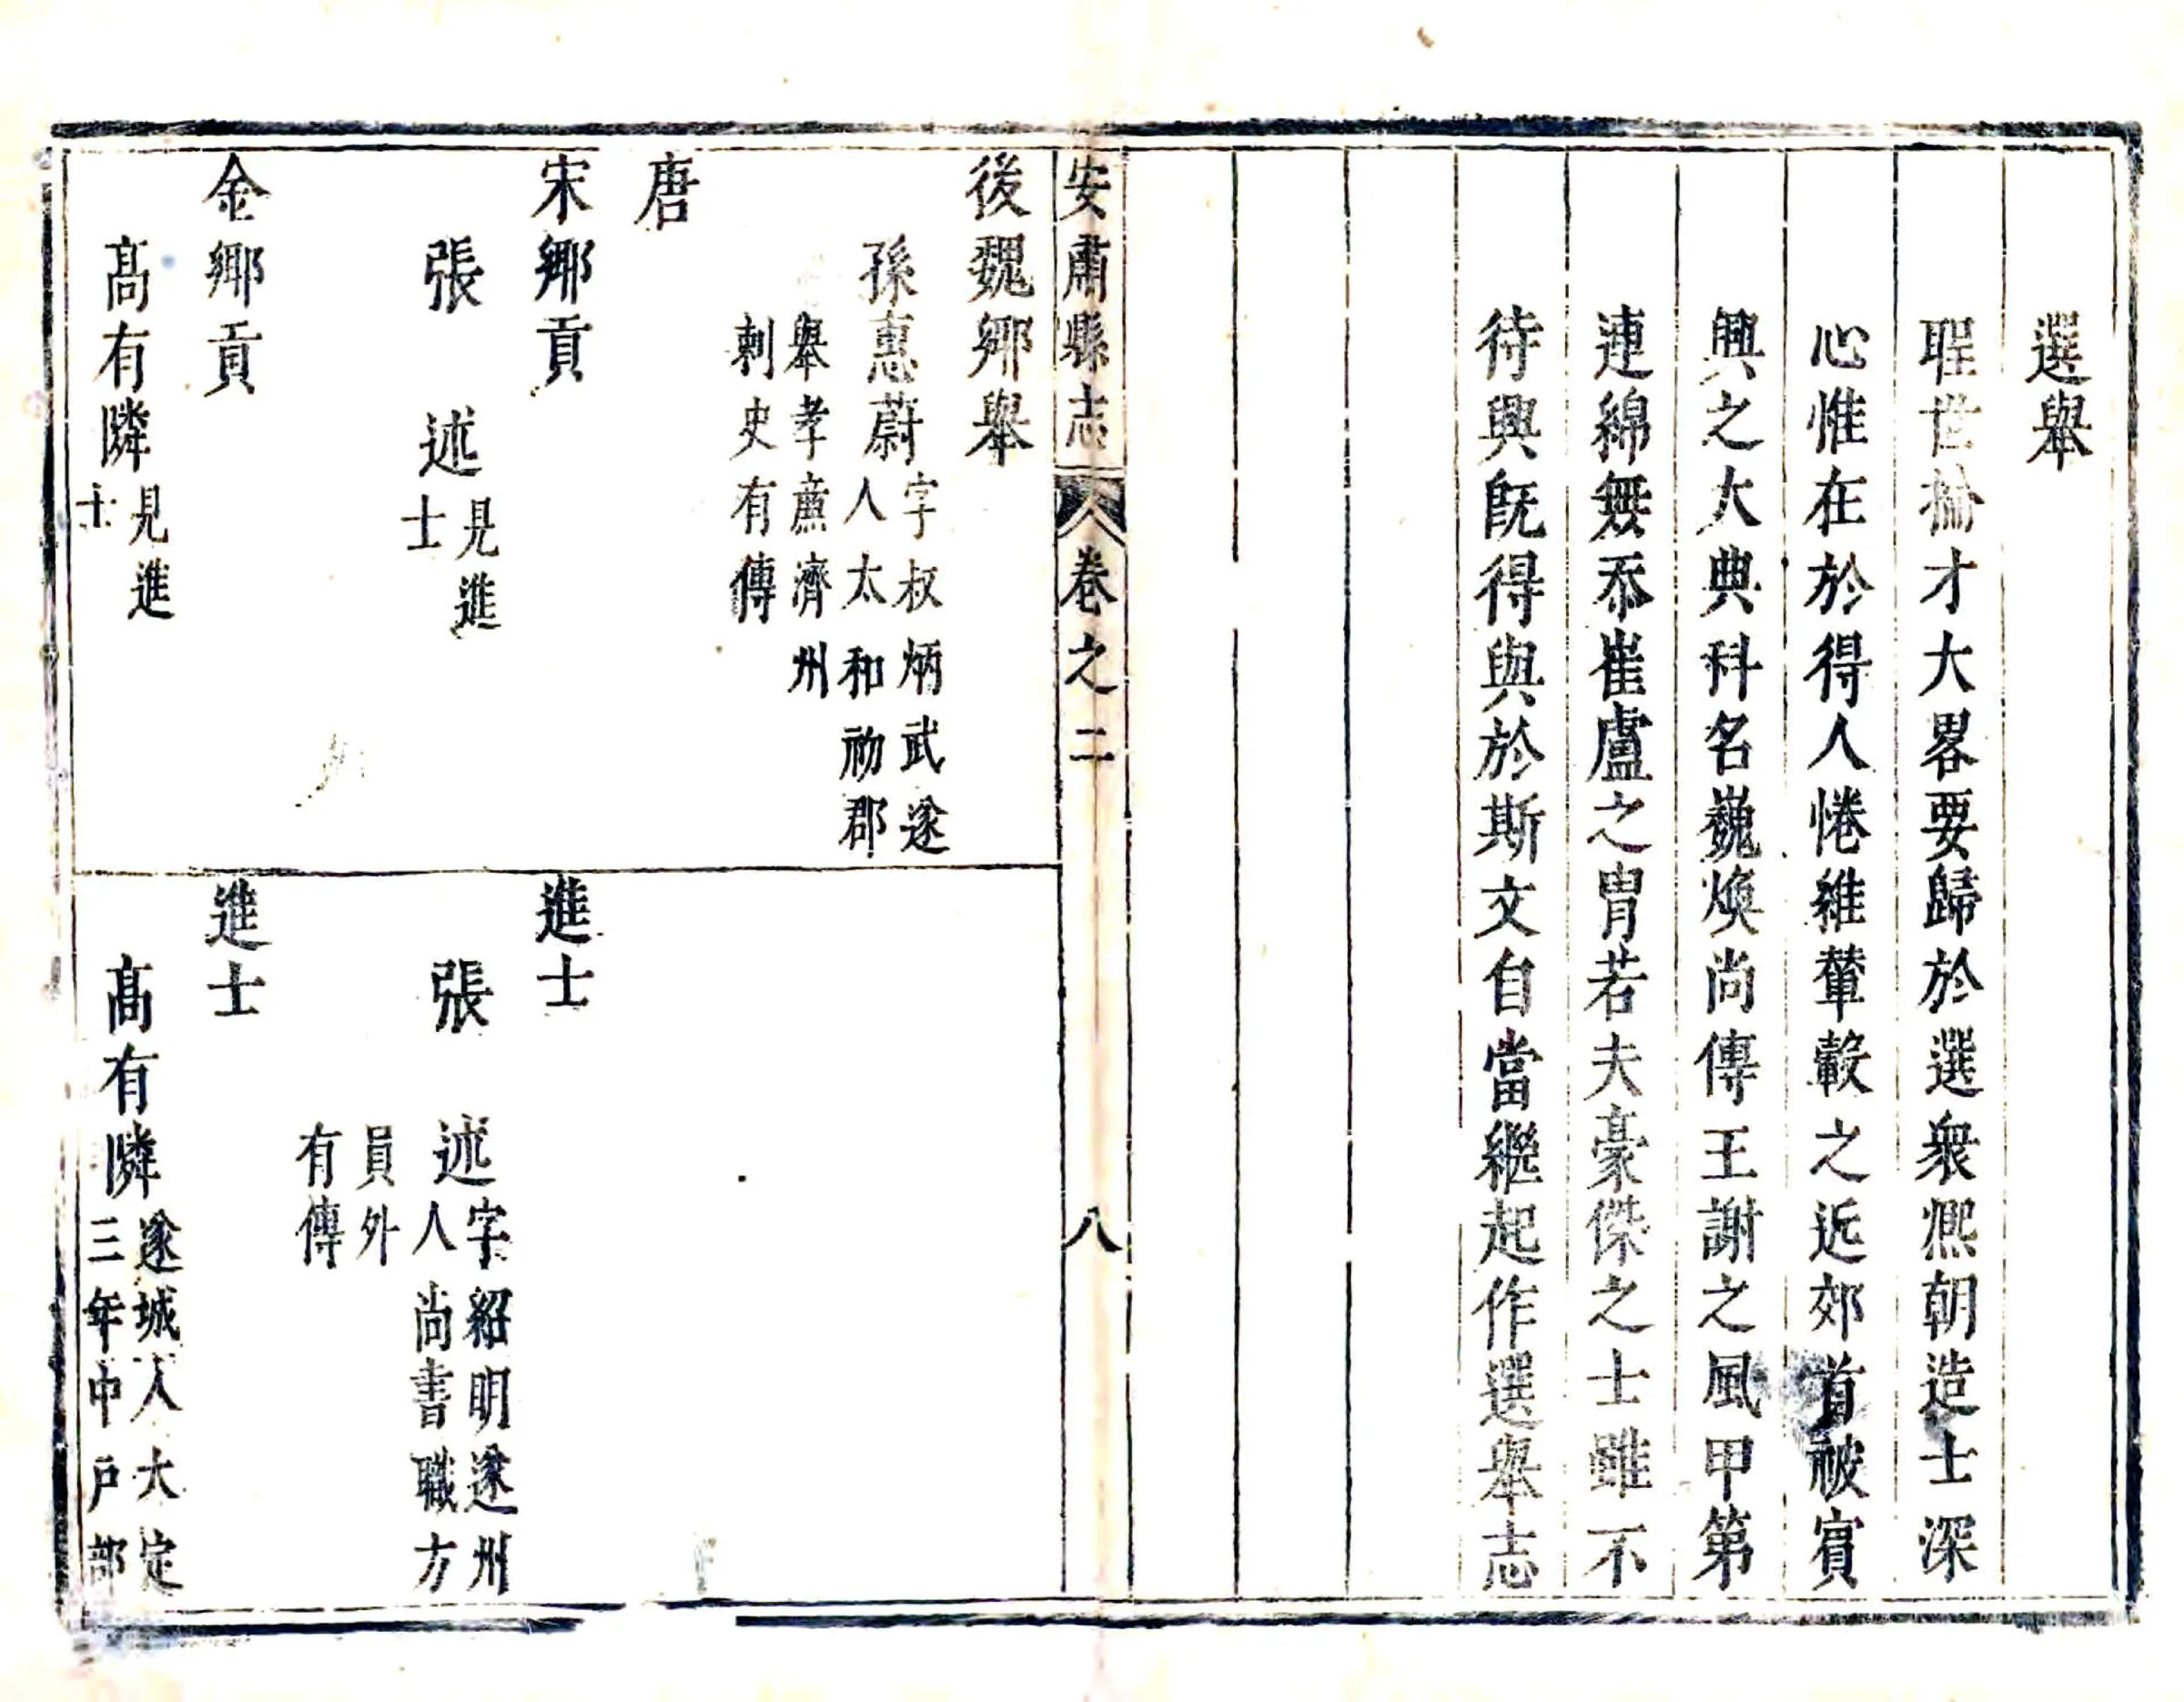 選舉
聖世掄才大畧要歸於選衆熈朝造士深
心惟在於得人惓維輦轂之近郊首被賓
興之大典科名巍煥尚傳王謝之風甲第
連綿無忝崔盧之冑若夫豪傑之士雖不
待興旣得與於斯文自當繼起作選舉志
安肅縣志
卷之二
八
後魏鄉舉
孫惠蔚
字叔炳武遂
人太和初郡
舉孝廉濟州
刺史有傳
唐
宋鄉貢
張述
見進
士
金鄉貢
髙有隣
見進
士
進士
張述
字紹明遂州
人尚書職方
員外
有傳
進士
髙有隣
遂城人大定
三年中戸部